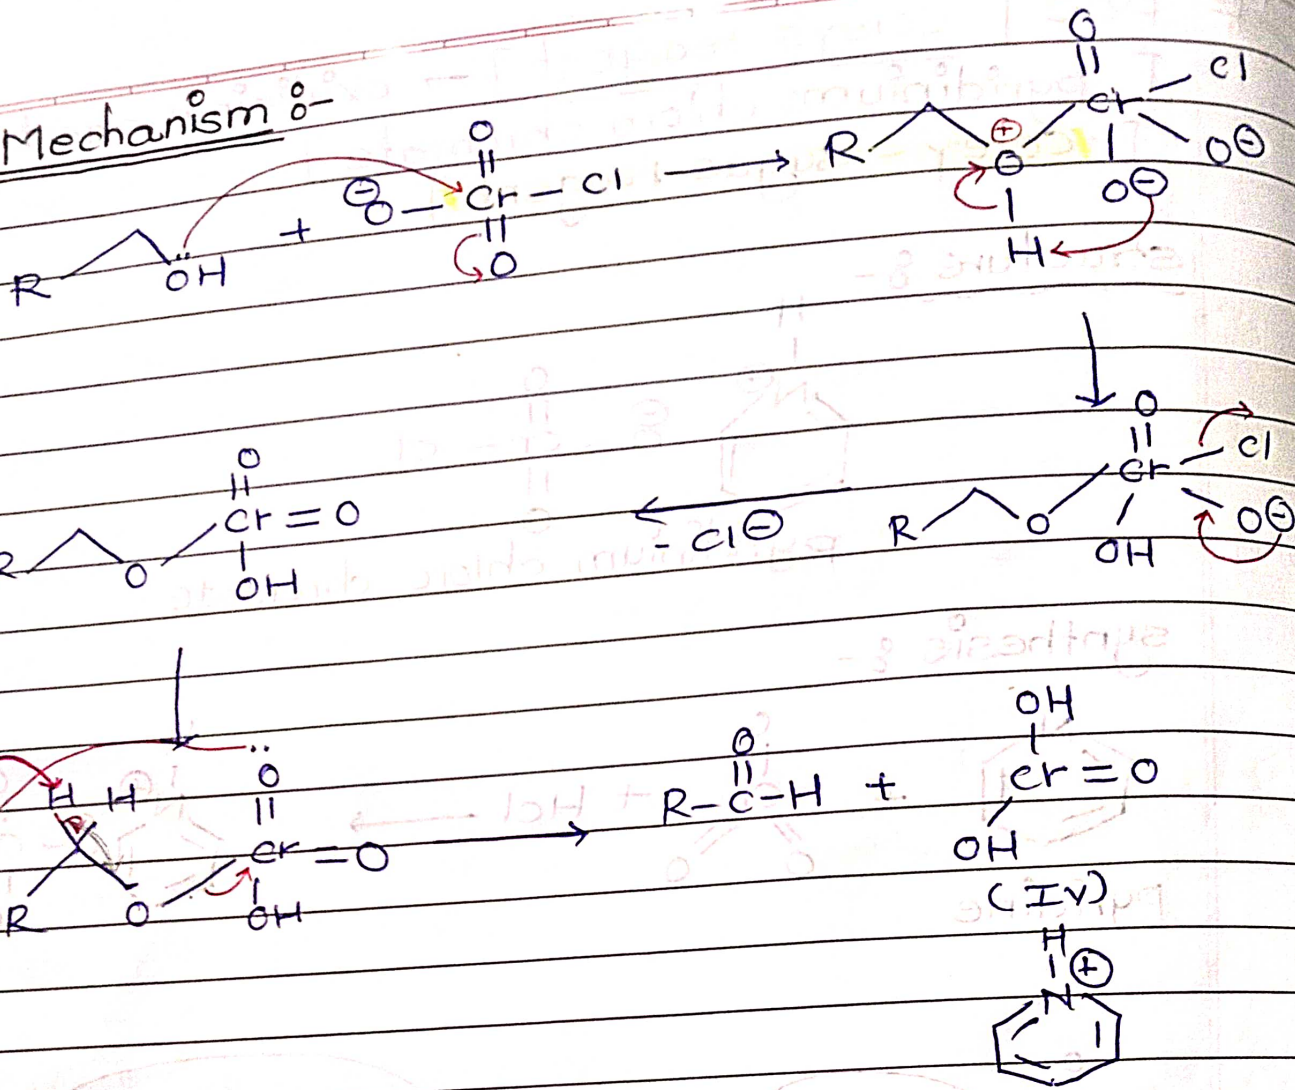 Mechanism :-
R OH + ⊖O-Cr(=O)(=O)-Cl → R O⊕(H)-Cr(=O)(Cl)(O⊖)(O⊖)
R O-Cr(=O)(Cl)(O⊖)(OH)
- Cl⊖
R O-Cr(=O)(=O)(OH)
R H H O-Cr(=O)(=O)(OH) → R-C(=O)-H + OH Cr=O OH
(IV)
H
N ⊕